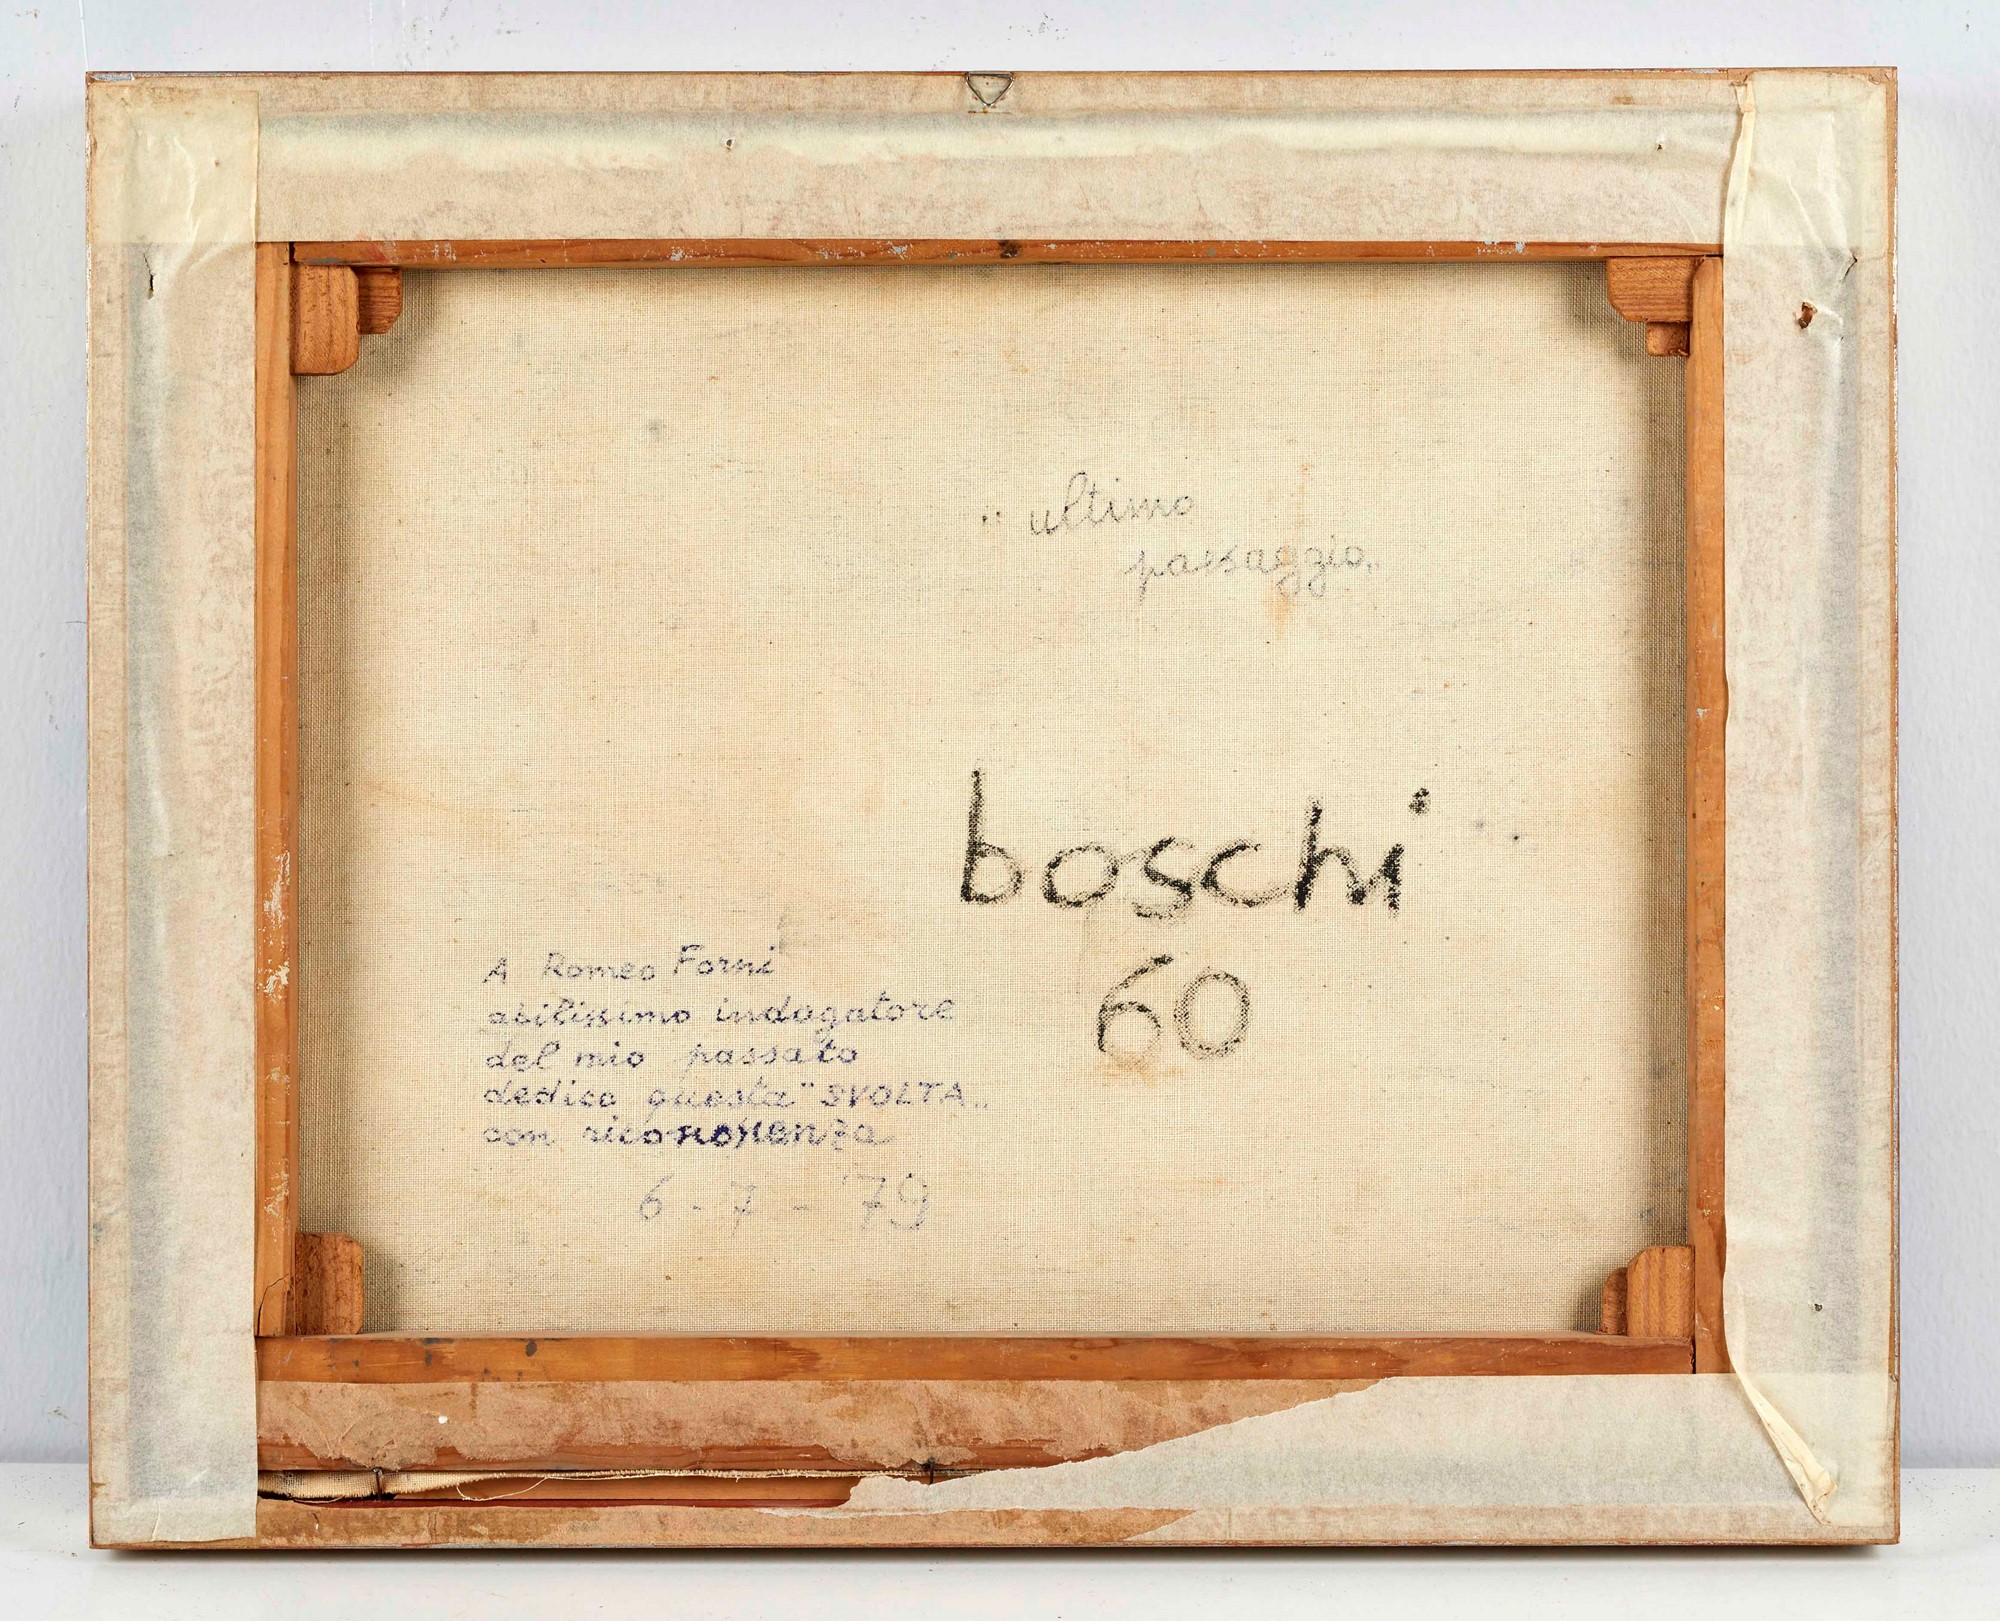 " ultimo
passaggio"
boschi
60
A Romeo Forni
abilissimo indagatore
del mio passato
dedico questa "SVOLTA"
con riconoscenza
6-7-79